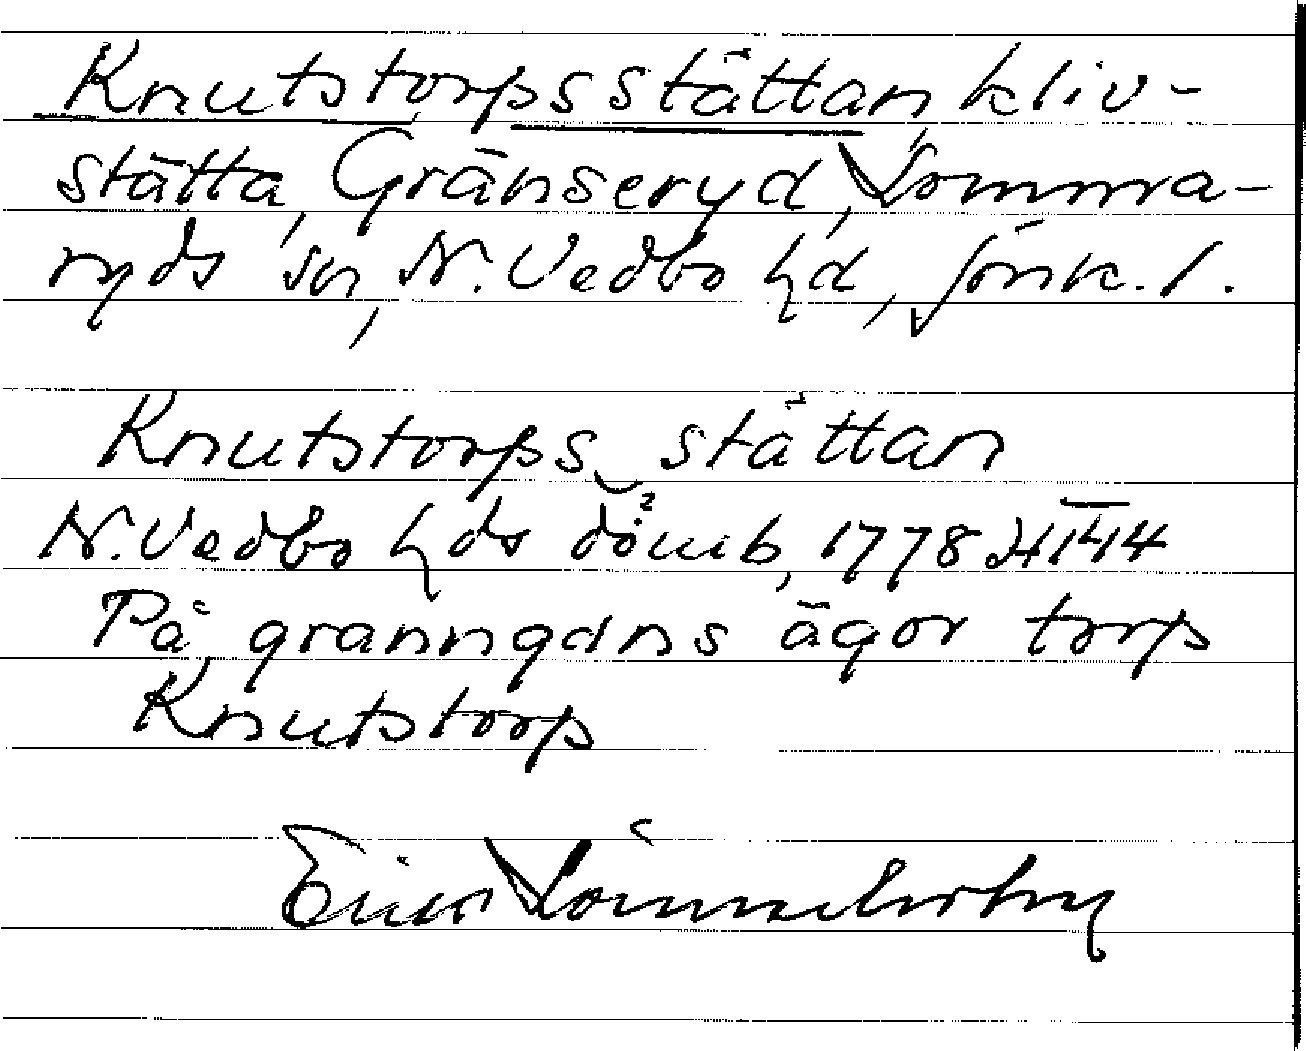 Knutstorpsstättan kliv-
stätta, Gränseryd, Lommma-
ryds sn, N. Vedbo hd, Jönk. l.
Knutstorps stättan
N. Vedbo hds domb, 1778 HT 44
På granngdns ägor torp
Knutstorp